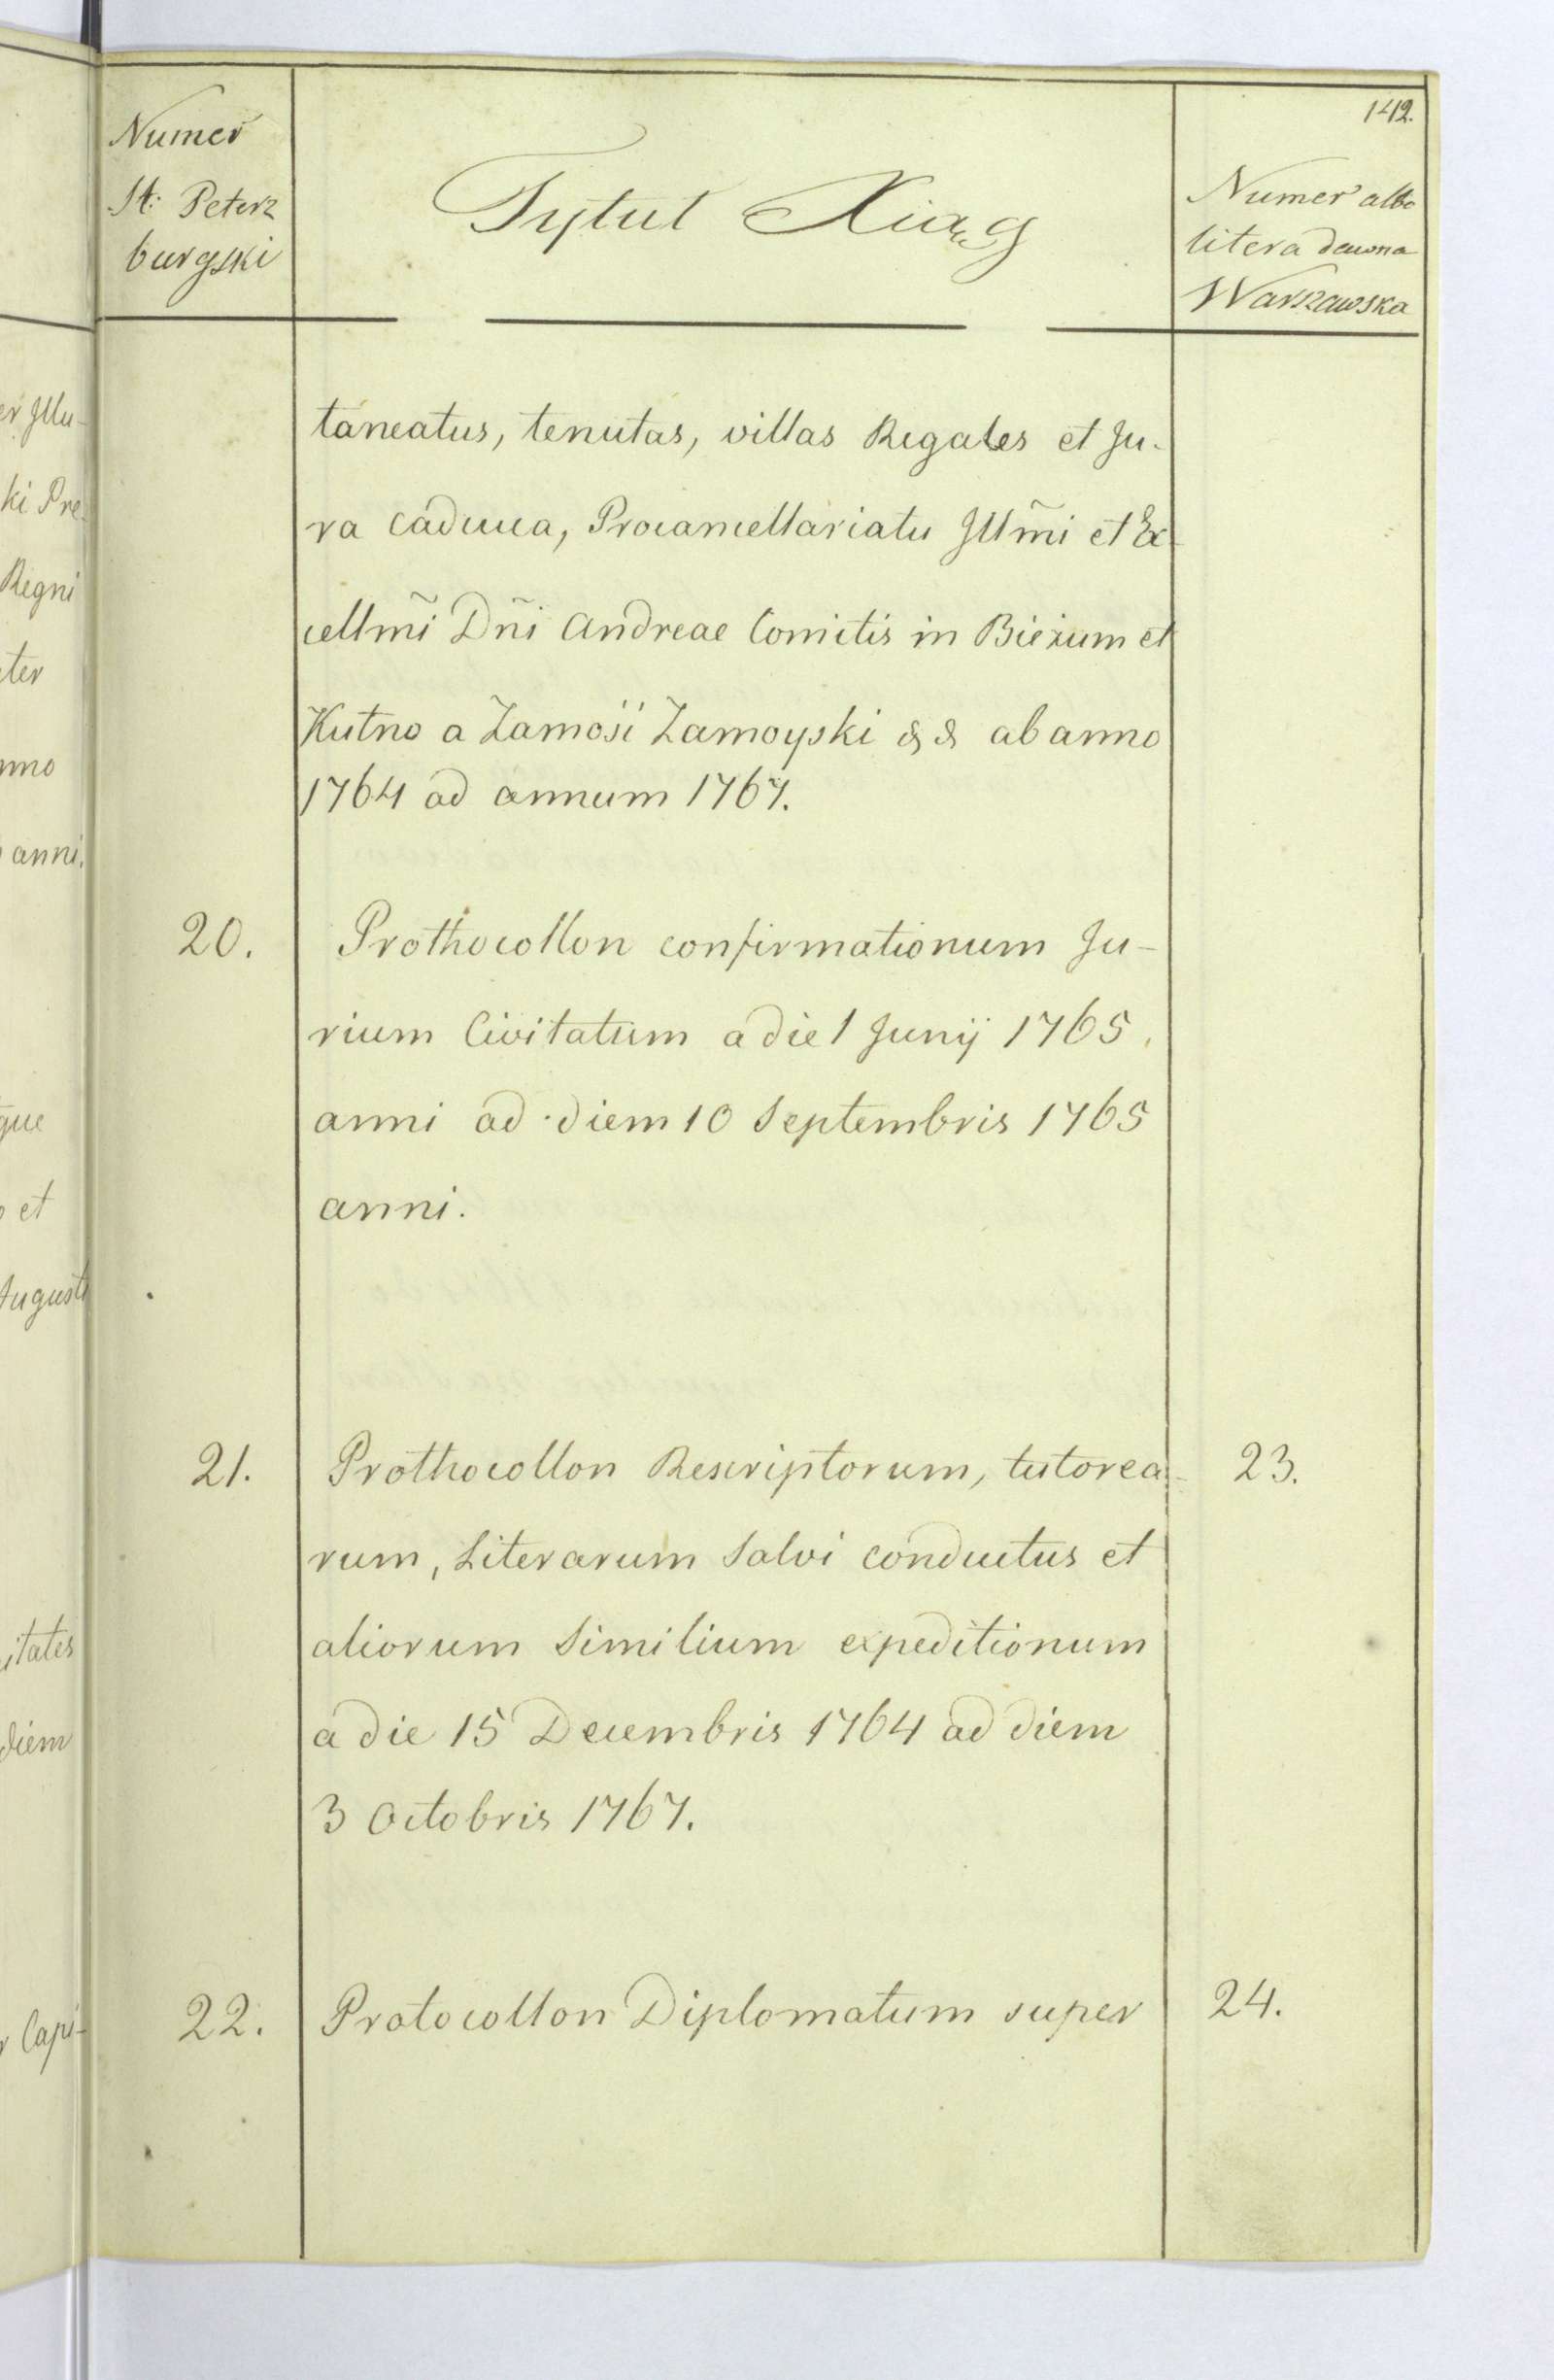 142.
Numer
St: Peterz
burgski
Tytuł Xiąg
Numer albo
litera dawna
Warszawska
taneatus, tenutas, villas Regales et Ju-
ra caduca, Procancellariatu Jllm̃i et Ex
cellm̃i Dñi Andreae Comitis in Bieżum et
Kutno a Zamości Zamoyski & & ab anno
1764 ad annum 1767.
20.
Prothocollon confirmationum Ju-
rium Civitatum a die 1 Junij 1765.
anni ad diem 10 Septembris 1765
anni.
21.
Prothocollon Rescriptorum, tutorea-
23.
rum, Literarum Salvi conductus et
aliorum Similium expeditionum
a die 15 Decembris 1764 ad diem
3 Octobris 1767.
22.
Protocollon Diplomatum super
24.
er Jllu-
ki Pre-
Regni
eter
nno
anni.
que
et
Augusti
itates
diem
Capi-